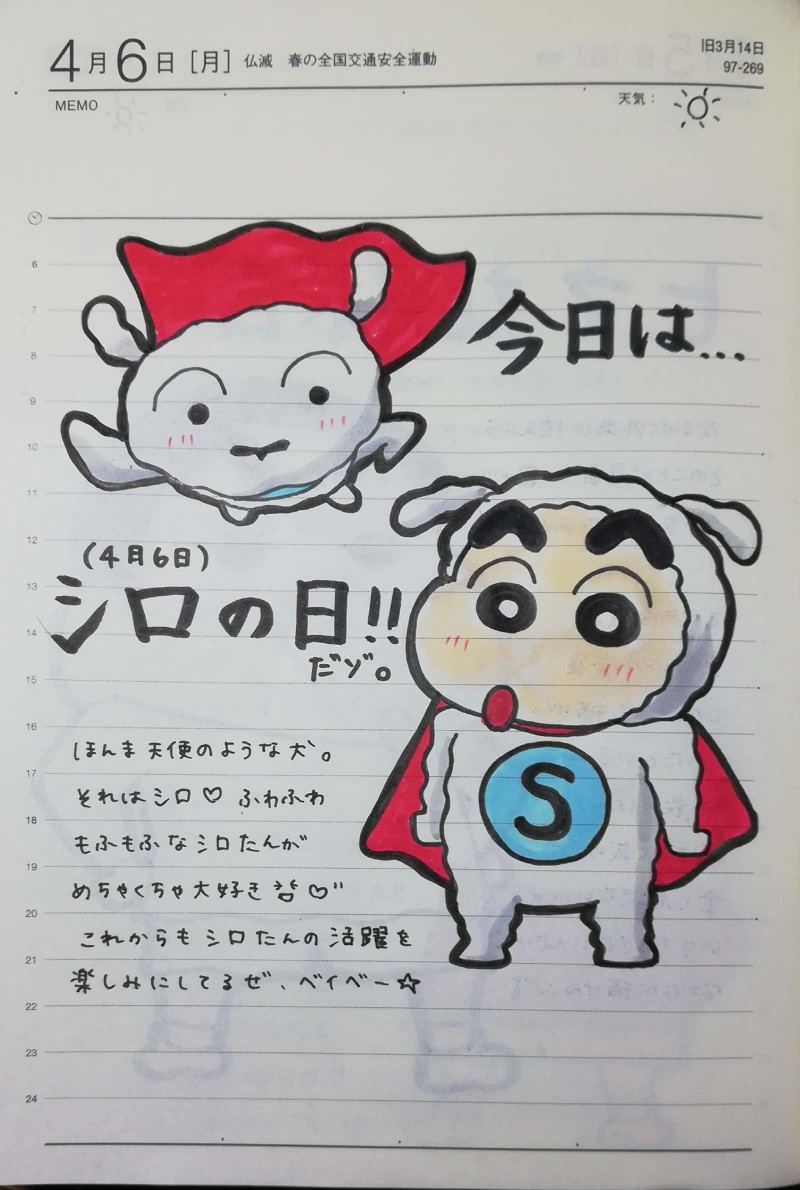 4月6日[月] 仏滅 春の全国交通安全運動
旧3月14日
97-269
MEMO
天気:
今日は...
(4月6日)
シロの日!!
だゾ。
S
ほんま天使のような犬。
それはシロ♡ ふわふわ
もふもふなシロたんが
めちゃくちゃ大好き
これからもシロたんの活躍を
楽しみにしてるぜ、ベイベー☆
6
7
8
9
10
11
12
13
14
15
16
17
18
19
20
21
22
23
24